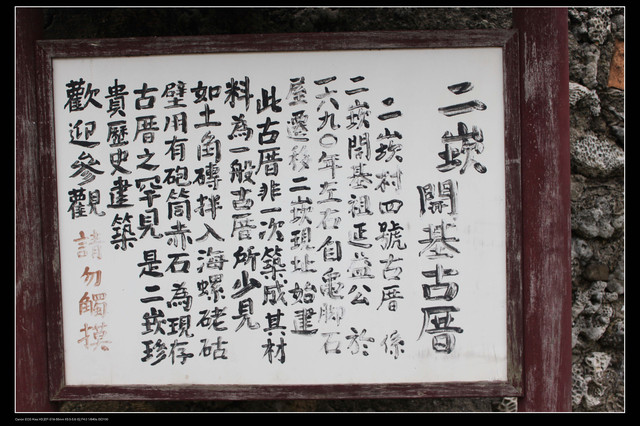 二崁開基古厝
二崁村四號古厝 係
二崁開基祖延益公 於
一六九〇年左右自龜腳石
屋遷移二崁現址始建
此古厝非一次築成其材
料為一般古厝所少見
如土角磚拌入海螺硓𥑮
壁用有砲筒赤石為現存
古厝之罕見 是二崁珍
貴歷史建築
歡迎參觀 請勿觸摸